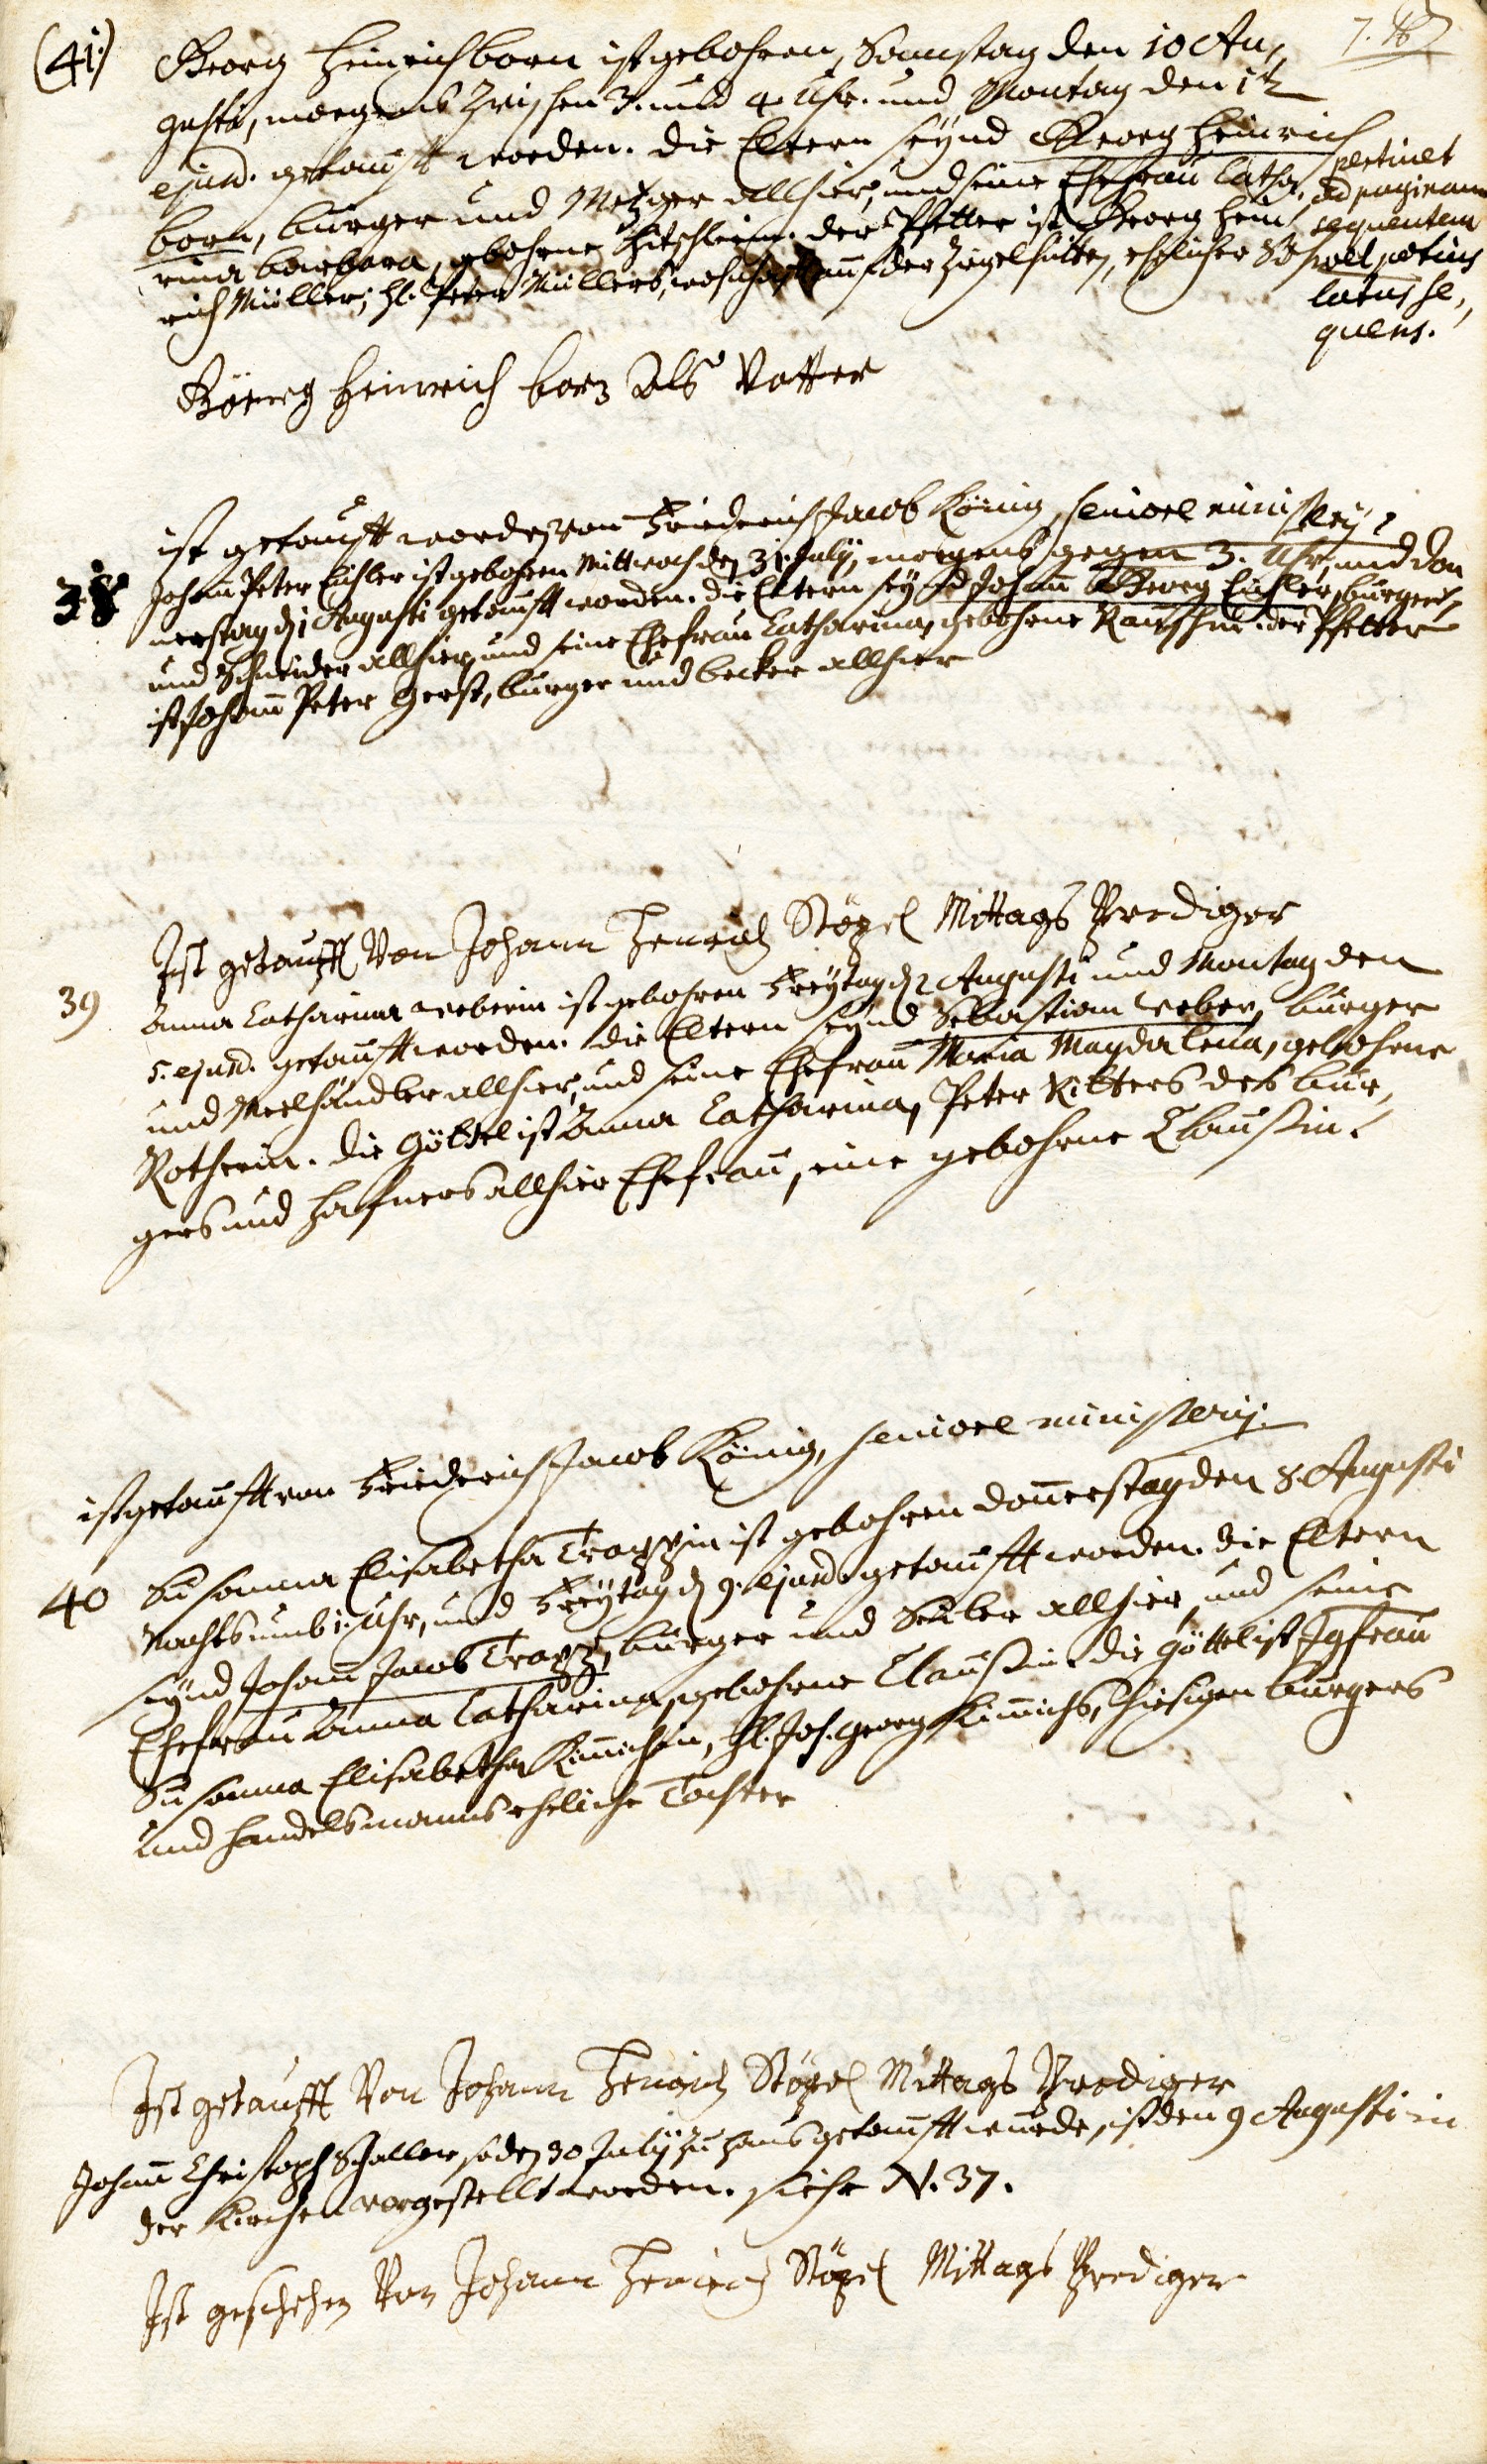 (41.) Georg Heinrich born ist gebohren, Sonnstag den 10 Au,
gusti, morgens zwischen 3. und 4. Uhr. und Montag den 12
ejusd. getaufft worden. die Eltern seynd Georg Heinrich
born, burger und Metzger allhier, und seine Ehefrau Catha,
rina barbara, gebohrne Hitschlerin. der Pfetter ist Georg Hein,
rich Müller, Hl. Peter Müllers, auf der Ziegelhütten, ehelicher
pertinet
ad paginam
sequentem
vel potius
latus se,
quens.
Göerg Heinrich born Als Vatter
ist getaufft worden von Friederich Jacob König, seniore ministerij.
38 Johann Peter Eichler ist gebohren Mittwoch den 31. July, morgens gegen 3. Uhr, und don
nerstag d. 1 Augusti getaufft worden. die Eltern seynd Johann Georg Eichler, burger
und Schneider allhier, und seine Ehefrau Catharina, gebohrne der Pfetter
ist Johann Peter Gerst, burger und becker allhier
Ist getaufft Von Johann Henrich Stözel Mittags Prediger
39 Anna Catharina weberin ist gebohren Freytag d. 2 Augusti und Montag den
5. ejusd. getaufft worden. die Eltern seynd Sebastian weber, burger
und Meelhändler allhier, und seine Ehefrau Maria Magdalena, gebohrne
Rothein. die Göttel ist Anna Catharina, Peter Ritters des bur,
gers und Hafners allhier Ehefrau, eine gebohrne Claussin.
ist getaufft von Friederich Jacob König, seniore ministerij.
40 Susanna Elisabetha Trappin ist gebohren donnerstag den 8. Augusti
Nachts umb 1. Uhr, und Freytag d. 9. ejusd. getaufft worden. die Eltern
seynd Johann Jacob Trapp, burger und allhier, und seine
Ehefrau Anna Catharina, gebohrne Claussin. die Göttel ist Jgfrau
Susanna Elisabetha Kimichin, Hl. Joh. Georg Kimichs, hiesigen burgers
und handelsmanns eheliche Tochter
Ist getaufft Von Johann Henrich Stözel Mittags Prediger
Johann Christoph Schaller, so den 30 July zu Haus getaufft wurde, ist den 9 Augusti in
der Kirchen vorgestellt worden. siehe N. 37.
Ist geschehen Von Johann Henrich Stözel Mittags Prediger